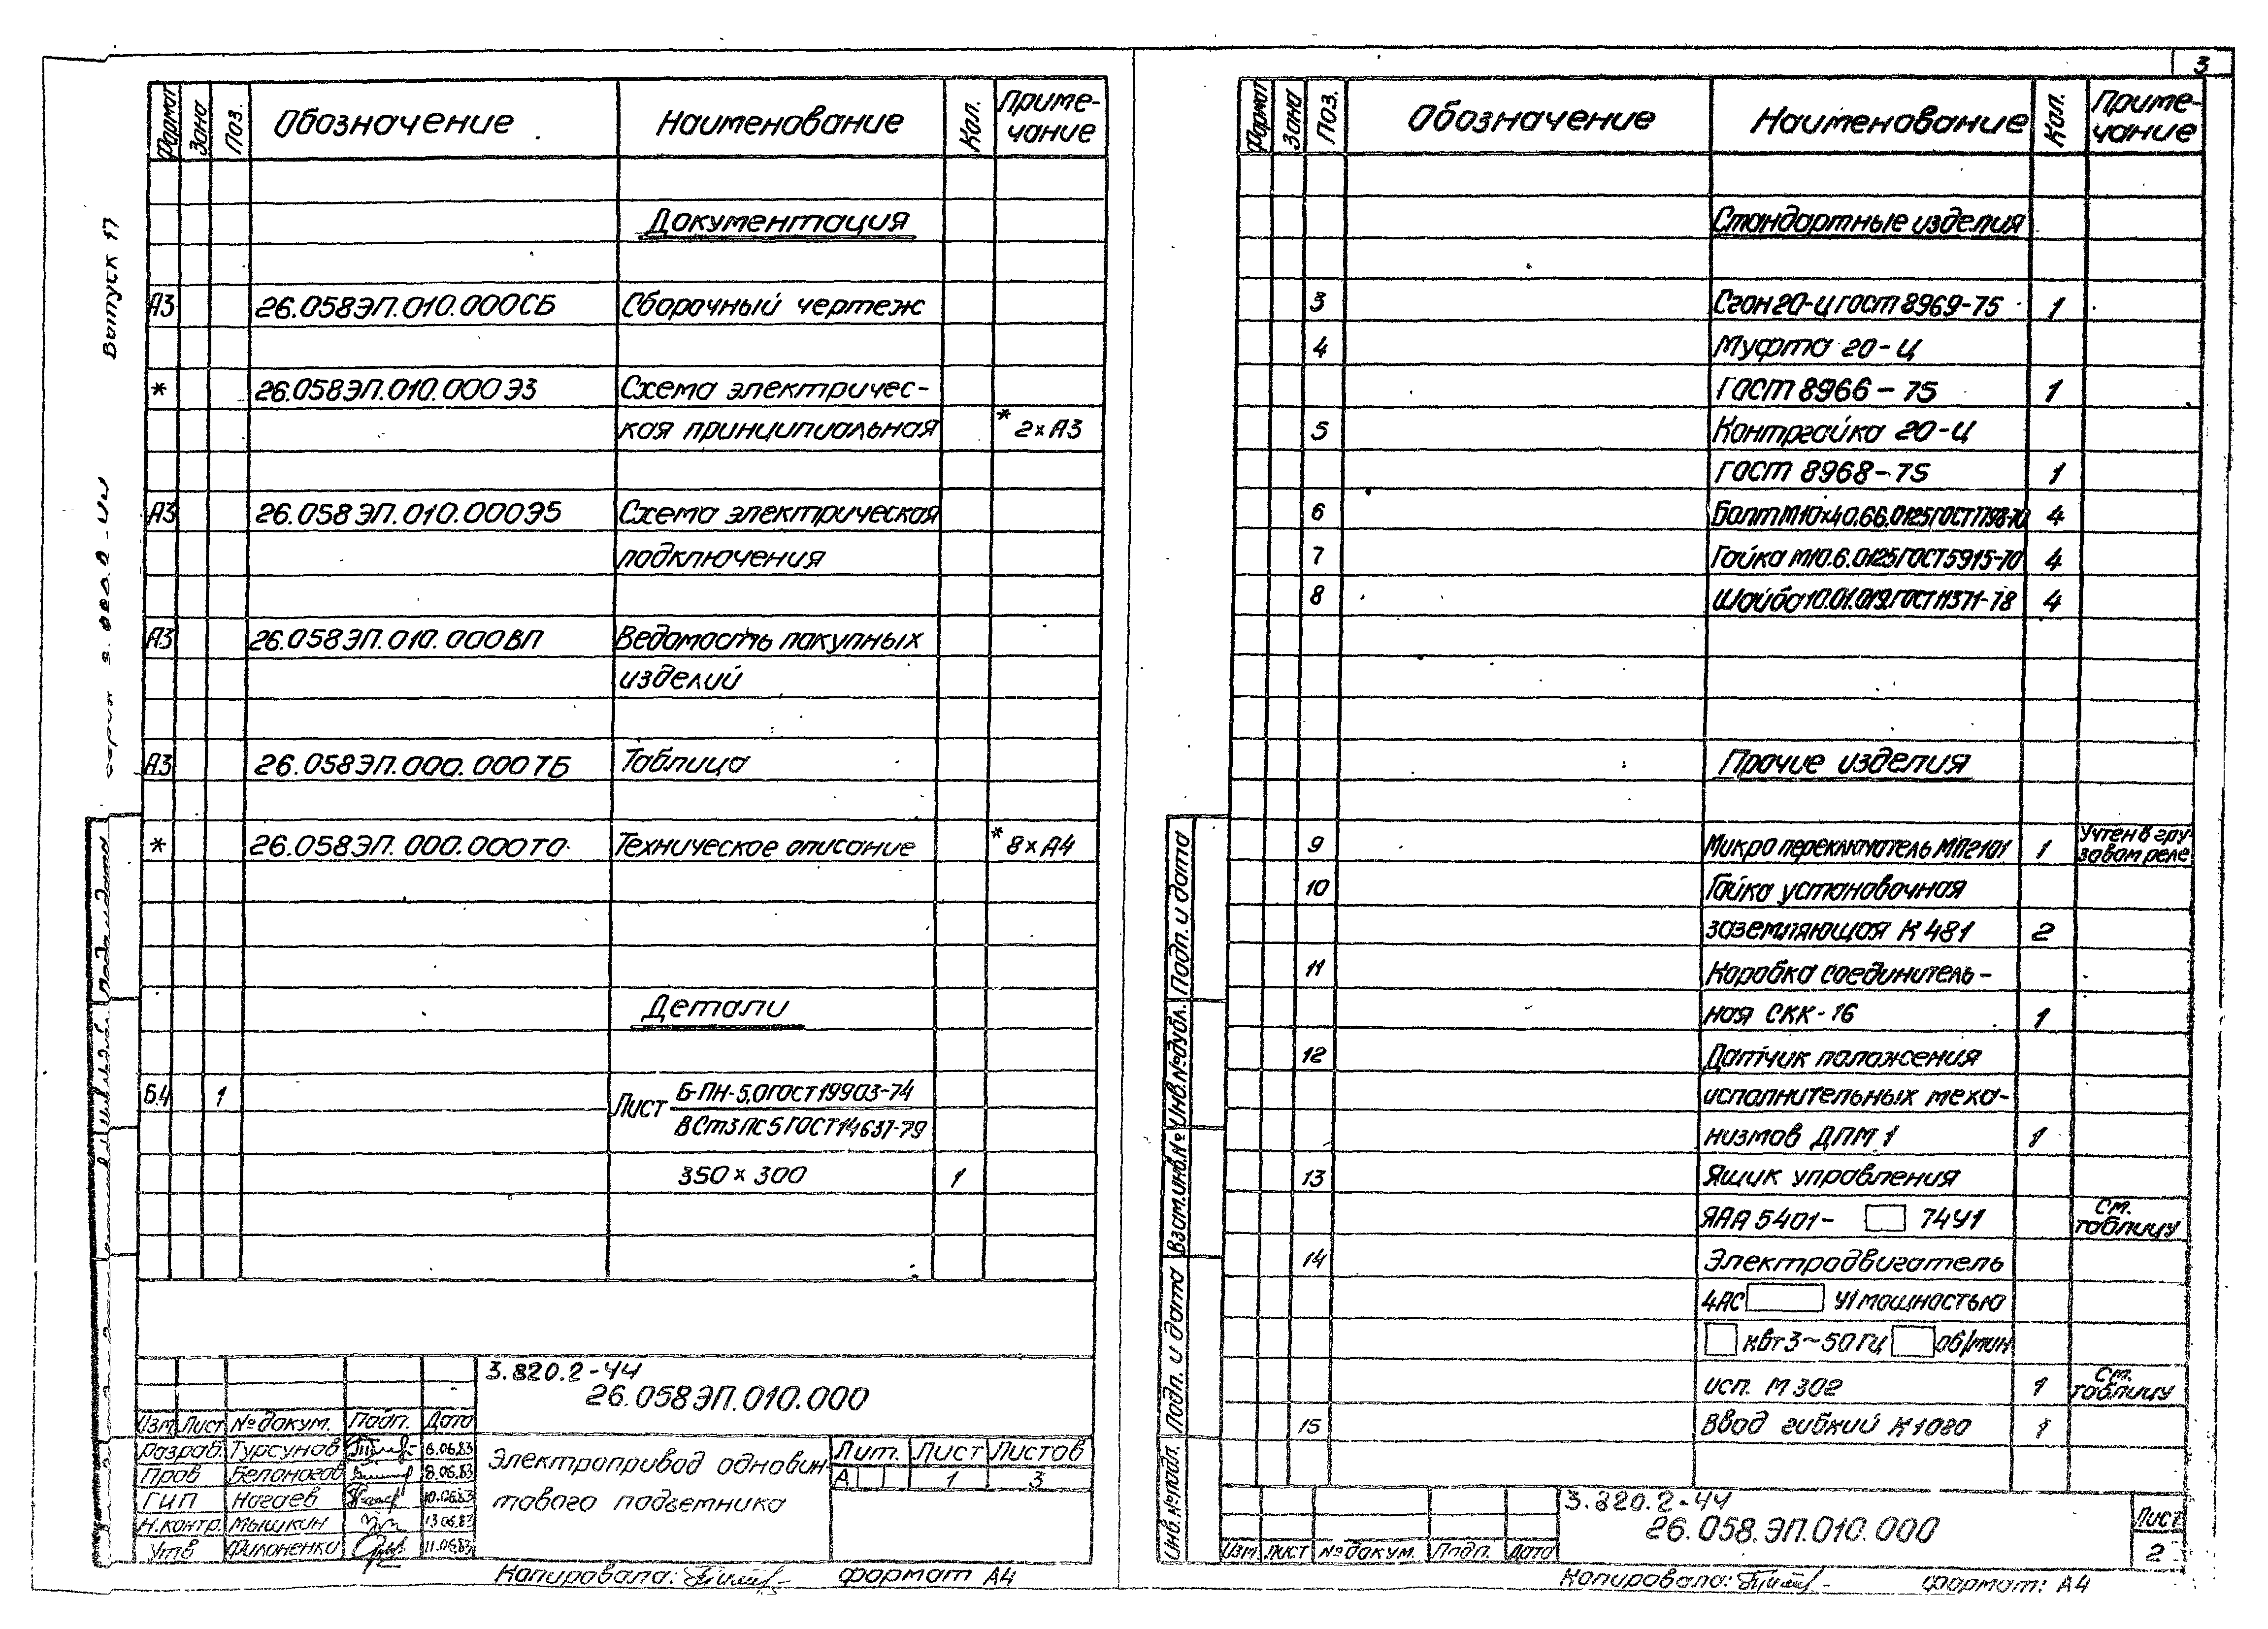 3
Выпуск 17
Формат Зона Поз. Обозначение Наименование Кол. Примечание
Документация
А3 26.058ЭП.010.000СБ Сборочный чертеж
* 26.058ЭП.010.000Э3 Схема электричес-
кая принципиальная * 2×А3
А3 26.058ЭП.010.000Э5 Схема электрическая
подключения
А3 26.058ЭП.010.000ВП Ведомость покупных
изделий
А3 26.058ЭП.000.000ТБ Таблица
* 26.058ЭП.000.000ТО Техническое описание * 8×А4
Детали
Б4 1 Лист Б-ПН-5,0 ГОСТ 19903-74
ВСт3ПС5 ГОСТ 14637-79
350×300 1
3.820.2-44
26.058ЭП.010.000
Изм Лист № докум. Подп. Дата
Разраб. Турсунов 6.06.83
Пров Белоногов 8.06.83
ГИП Нагаев 10.06.83
Н.контр. Мышкин
Утв Филоненко 11.06.83
Электропривод одновин-
тового подъемника
Лит. Лист Листов
А 1 3
Копировала: формат А4
Формат Зона Поз. Обозначение Наименование Кол. Приме-
чание
Стандартные изделия
3 Сгон 20-Ц ГОСТ 8969-75 1
4 Муфта 20-Ц
ГОСТ 8966-75 1
5 Контргайка 20-Ц
ГОСТ 8968-75 1
6 Болт М10×40.66.0125 ГОСТ 7798-70 4
7 Гайка М10.6.0125 ГОСТ 5915-70 4
8 Шайба 10.01.019 ГОСТ 11371-78 4
Прочие изделия
9 Микропереключатель МП2101 1 Учтен в гру-
зовом реле
10 Гайка установочная
заземляющая К 481 2
11 Коробка соединитель-
ная СКК-16 1
12 Датчик положения
исполнительных меха-
низмов ДПМ 1 1
13 Ящик управления
ЯАА 5401- 74У1 См.
таблицу
14 Электродвигатель
4АС У1 мощностью
квт 3~50 Гц об/мин
исп. М 302 1 См.
таблицу
15 Ввод гибкий К 1080 1
Подп. и дата
Инв.№ дубл.
Взам.инв.№
Подп. и дата
Инв.№ подл.
3.820.2-44
26.058.ЭП.010.000
Изм Лист № докум. Подп. Дата
Лист
2
Копировала: формат: А4